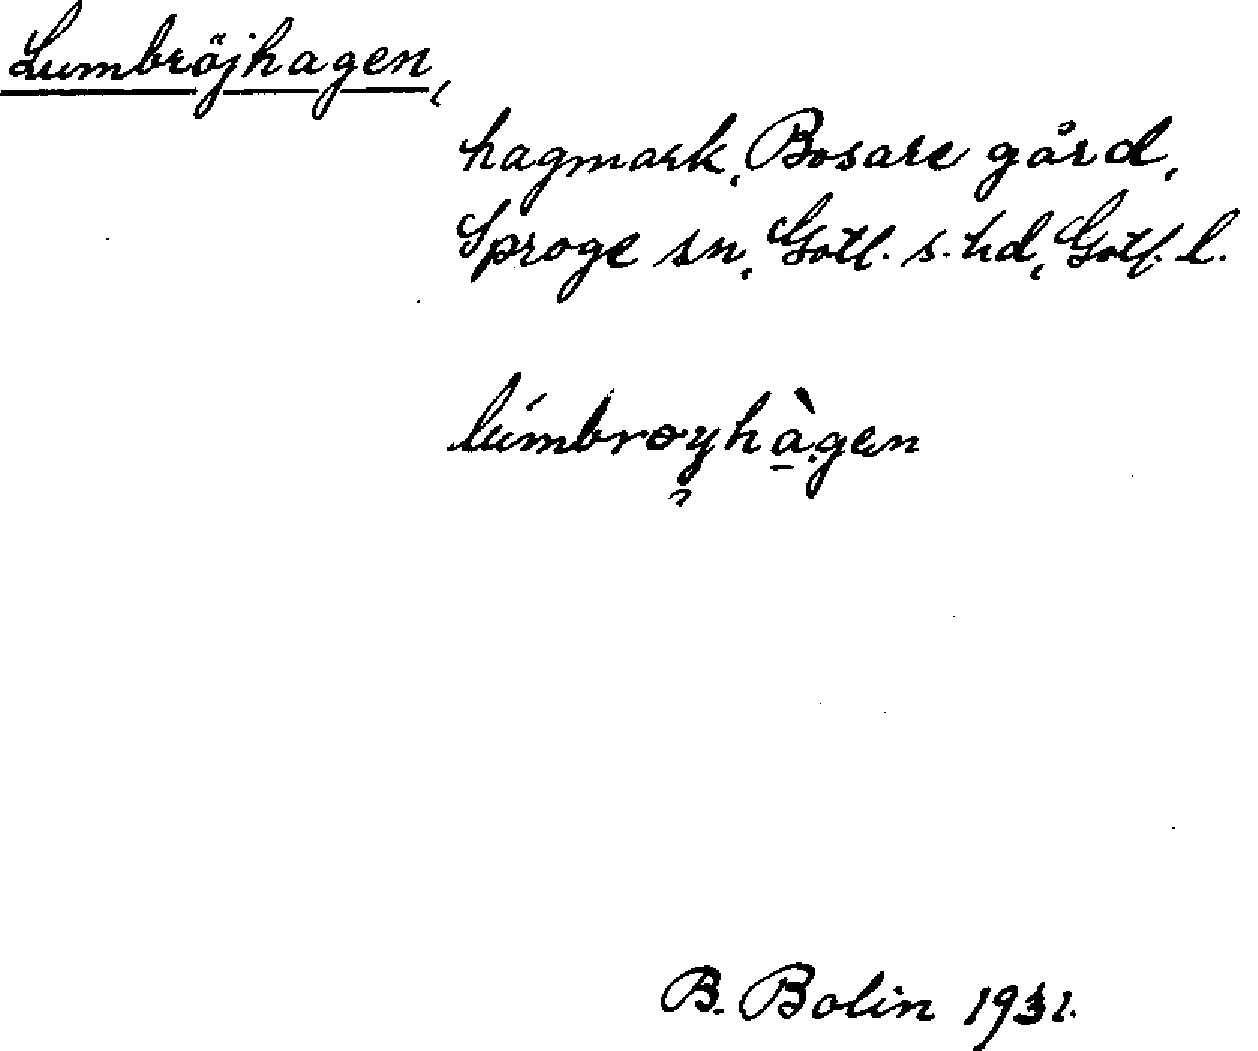 Lumbröjhagen,
hagmark, Bosare gård,
Sproge sn, Gotl. s. hd, Gotl. l.
lúmbrøyhà.gen
B. Bolin 1931.